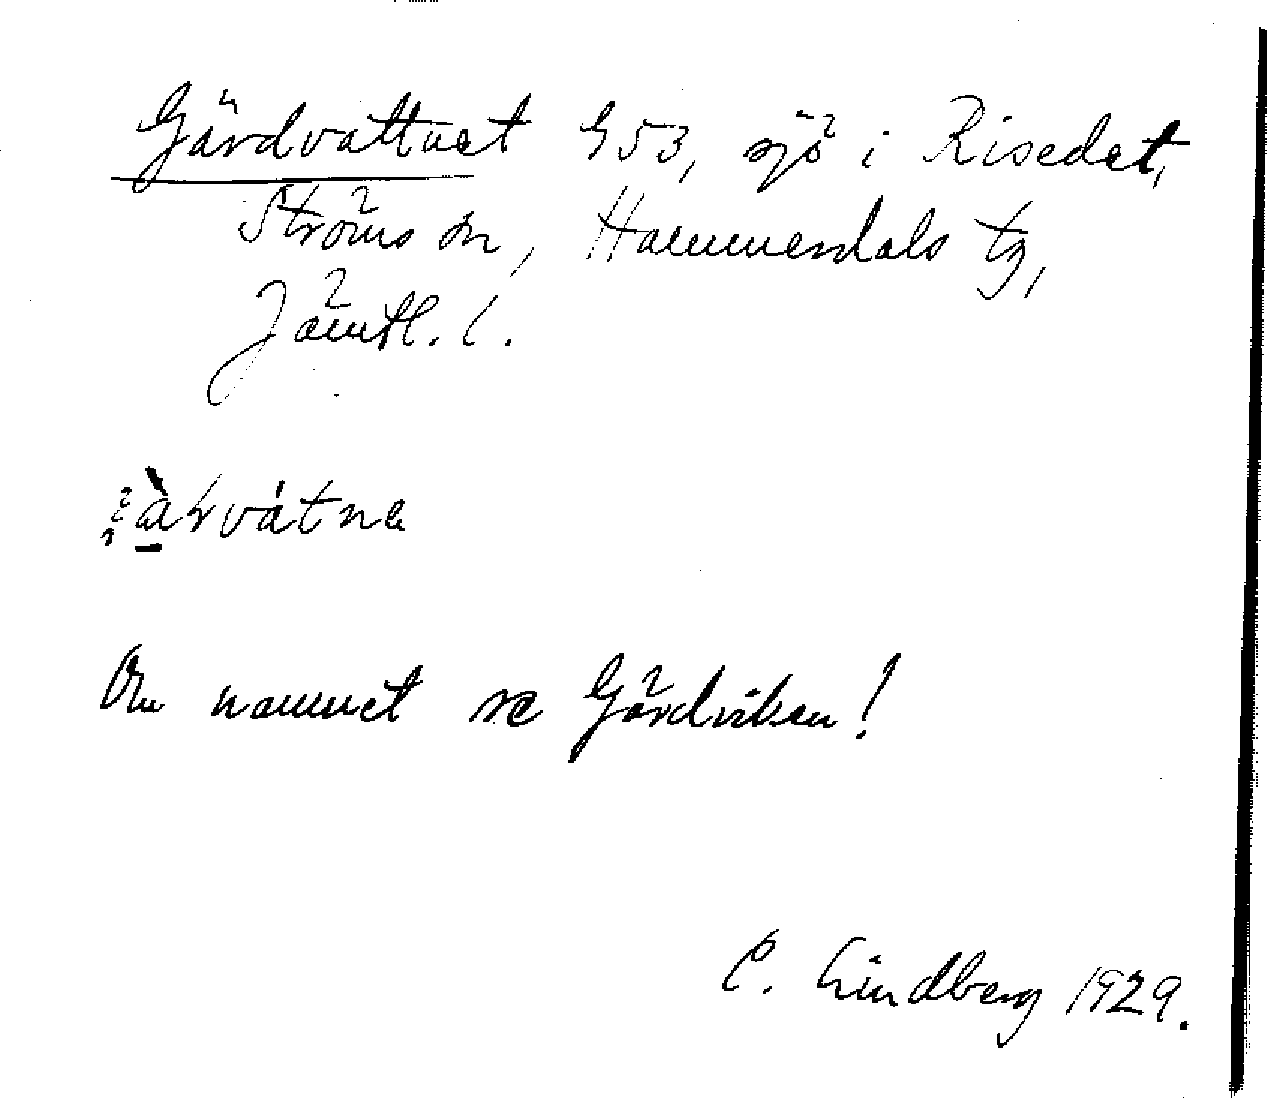 Gärdvattnet G53, sjö i Risedet,
Ströms sn, Hammerdals tg,
Jämtl. l.
Om namnet se Gärdviken!
C. Lindberg 1929.